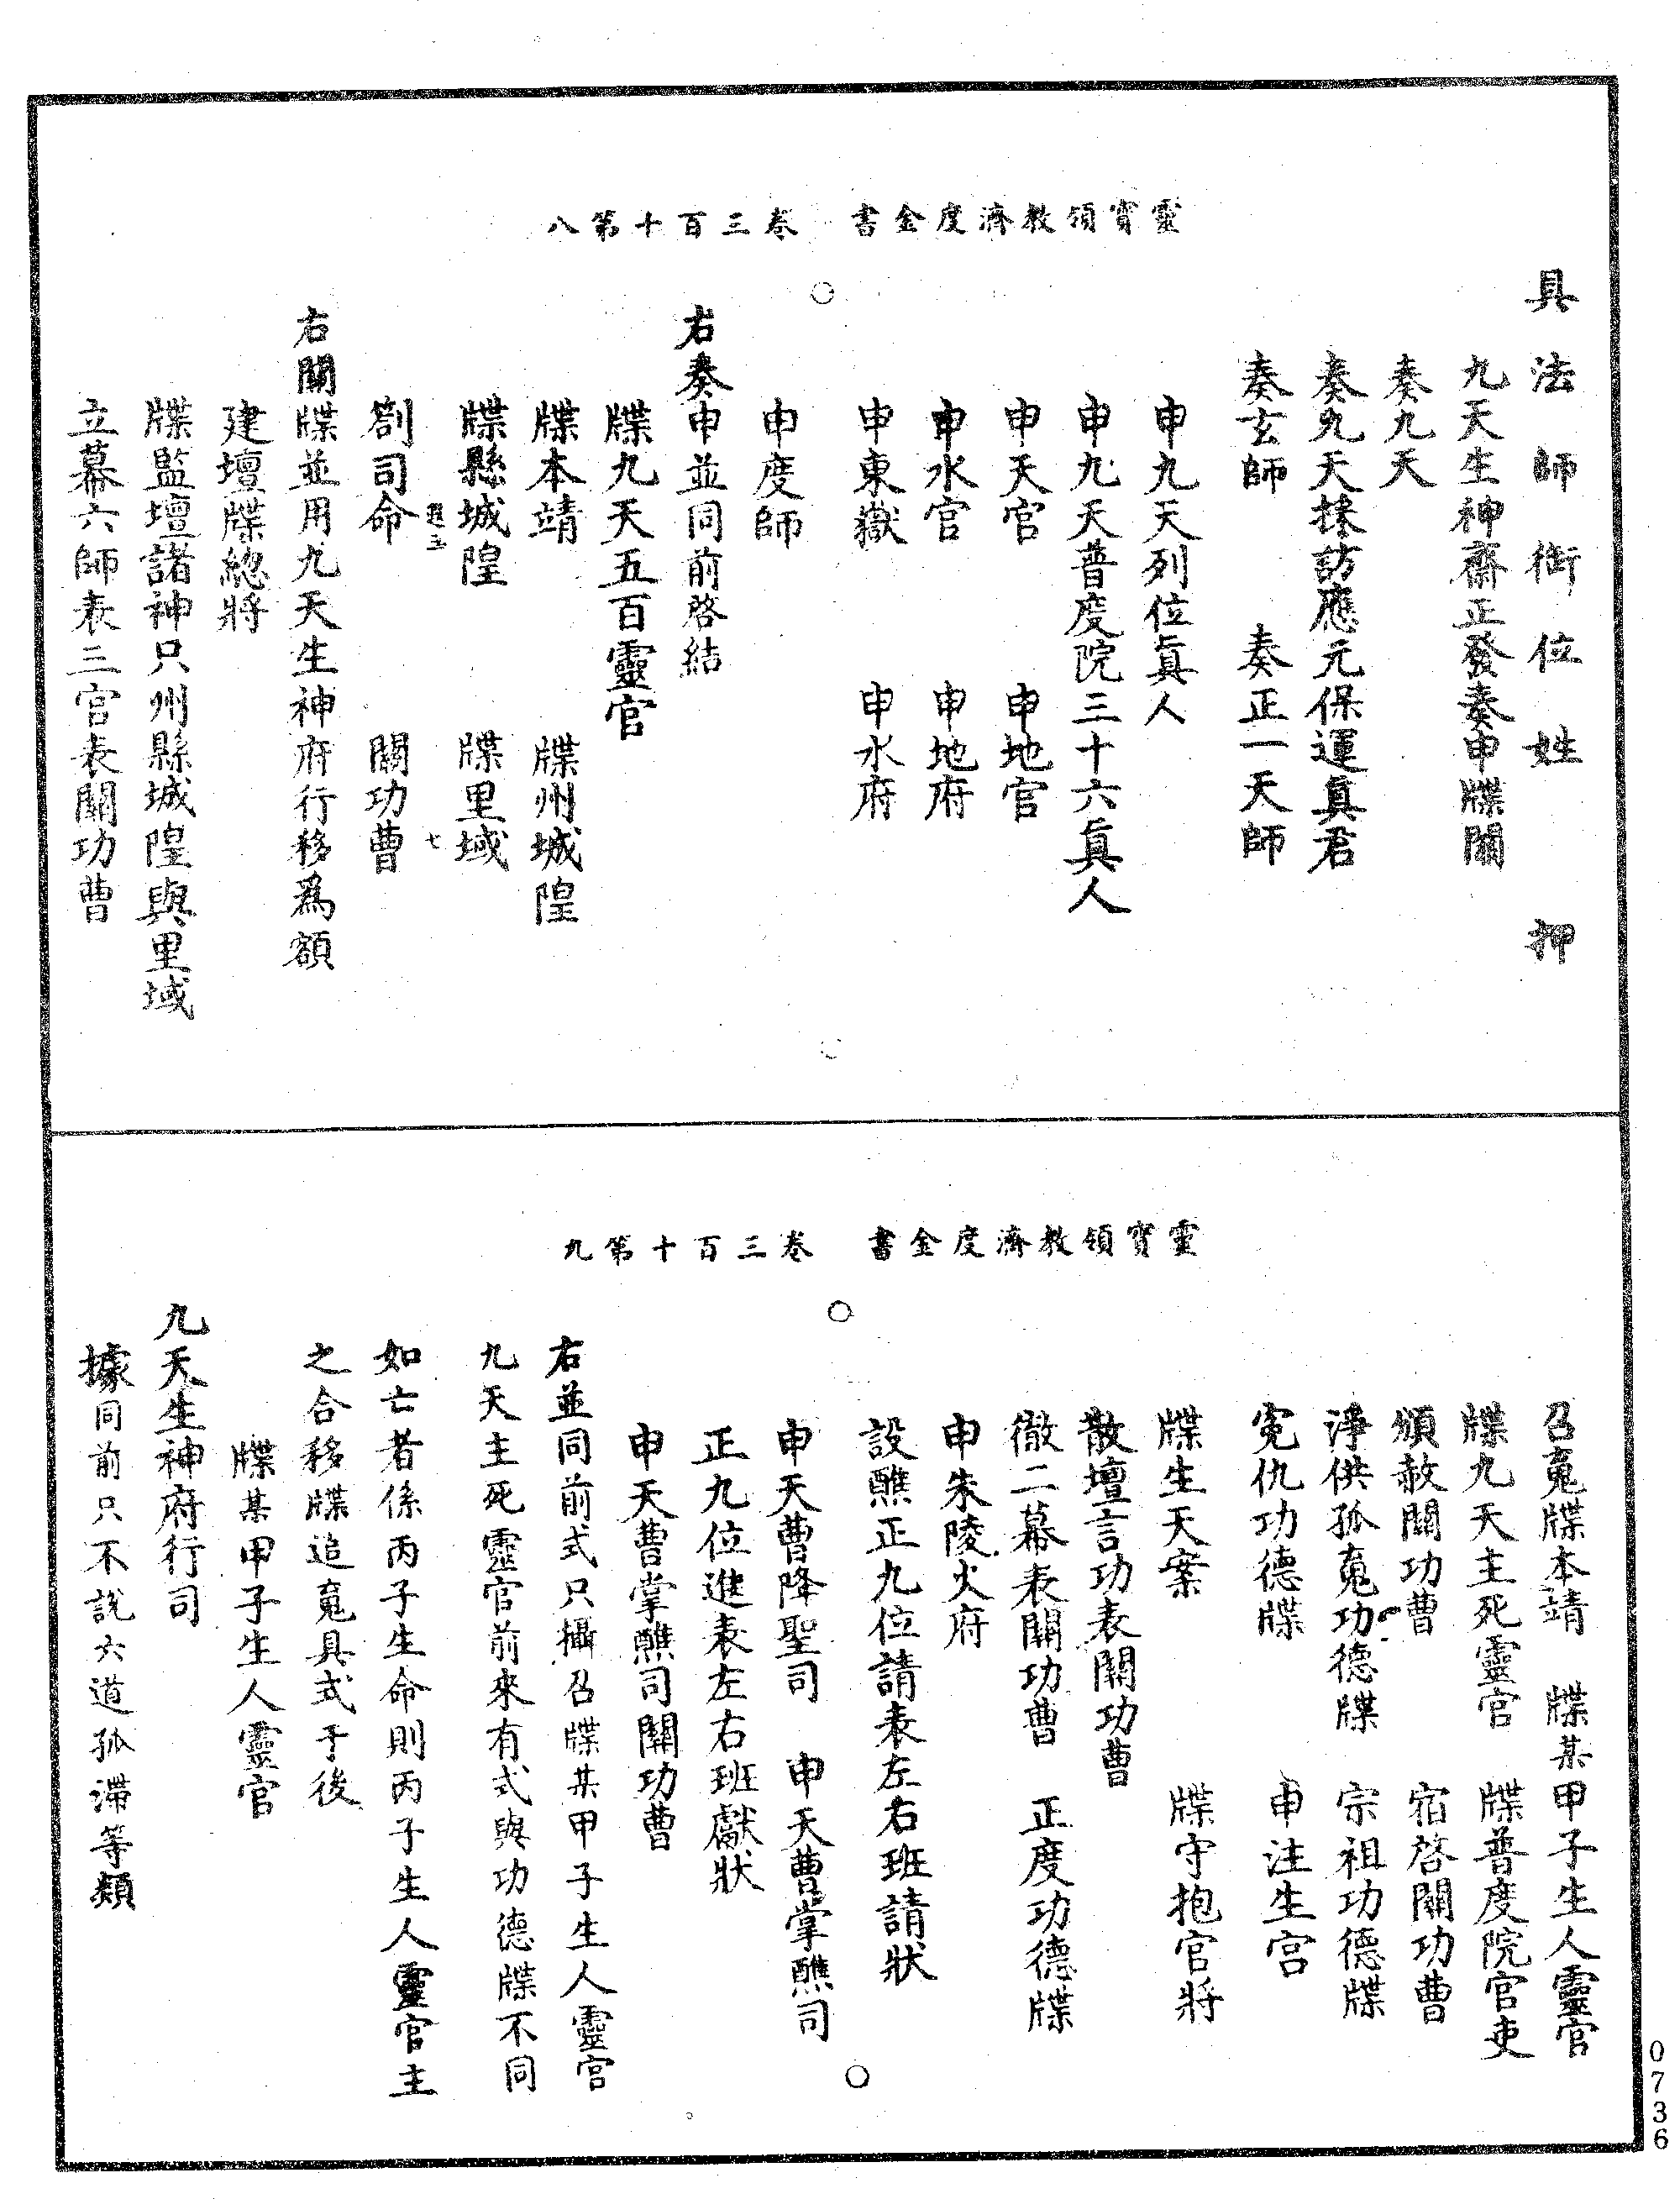 靈寳領教濟度金書　卷三百十第八
具法師銜位姓　押
九天生神齋正發奏申牒關
奏九天
奏九天採訪應元保運眞君
奏玄師　奏正一天師
申九天列位眞人
申九天普度院三十六眞人
申天官　申地官
申水官　申地府
申東嶽　申水府
申度師
右奏申並同前啓結
牒九天五百靈官
牒本靖　牒州城隍
牒縣城隍　牒里域
七
劄司命　關功曹
右關牒並用九天生神府行移爲額
建壇牒總將
牒監壇諸神只州縣城隍與里域
立幕六師表三官表關功曹
靈寳領教濟度金書　卷三百十第九
召䰟牒本靖　牒某甲子生人靈官
牒九天主死靈官　牒普度院官吏
頒赦關功曹　宿啓關功曹
淨供孤䰟功德牒　宗祖功德牒
寃仇功德牒　申注生宮
牒生天案　牒守抱官將
散壇言功表關功曹
徹二幕表關功曹　正度功德牒
申朱陵火府
設醮正九位請表左右班請狀
申天曹降聖司　申天曹掌醮司
正九位進表左右班獻狀
申天曹掌醮司關功曹
右並同前式只攝召牒某甲子生人靈官
九天主死靈官前來有式與功德牒不同
如亡者係丙子生命則丙子生人靈官主
之合移牒追䰟具式于後
牒某甲子生人靈官
九天生神府行司
據同前只不說六道孤滯等類
0736